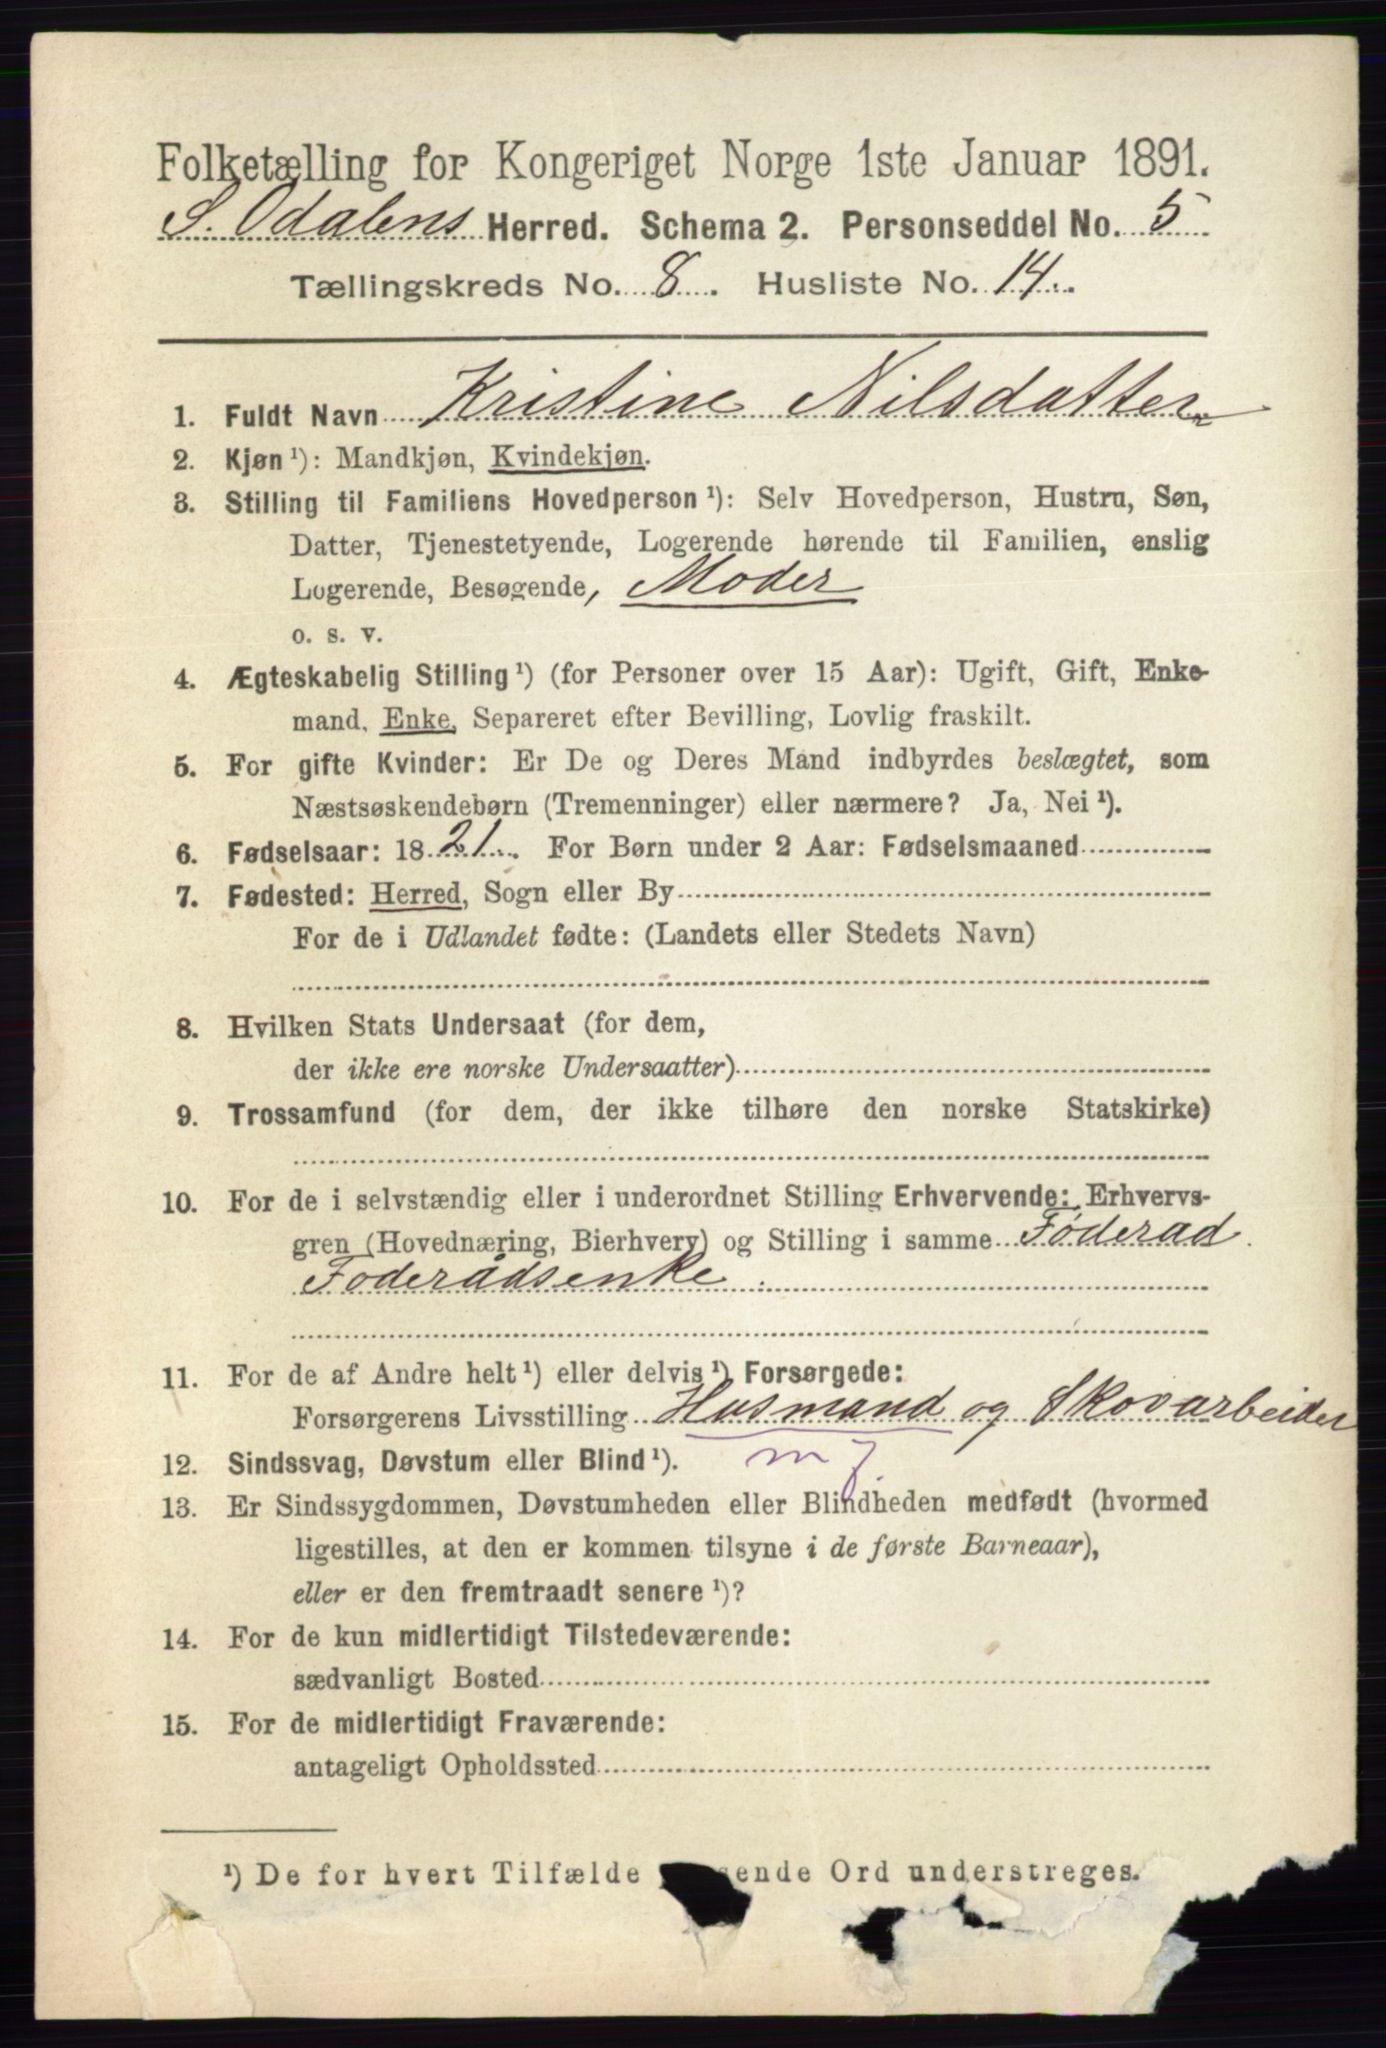 Folketælling for Kongeriget Norge 1ste Januar 1891.
S. Odalens Herred. Schema 2. Personseddel No. 5
Tællingskreds No. 8. Husliste No. 14.
1. Fuldt Navn Kristine Nilsdatter
2. Kjøn ¹): Mandkjøn, Kvindekjøn.
3. Stilling til Familiens Hovedperson ¹): Selv Hovedperson, Hustru, Søn,
Datter, Tjenestetyende, Logerende hørende til Familien, enslig
Logerende, Besøgende, Moder
o. s. v.
4. Ægteskabelig Stilling ¹) (for Personer over 15 Aar): Ugift, Gift, Enke-
mand, Enke, Separeret efter Bevilling, Lovlig fraskilt.
5. For gifte Kvinder: Er De og Deres Mand indbyrdes beslægtet, som
Næstsøskendebørn (Tremenninger) eller nærmere? Ja, Nei ¹).
6. Fødselsaar: 1821. For Børn under 2 Aar: Fødselsmaaned
7. Fødested: Herred, Sogn eller By
For de i Udlandet fødte: (Landets eller Stedets Navn)
8. Hvilken Stats Undersaat (for dem,
der ikke ere norske Undersaatter)
9. Trossamfund (for dem, der ikke tilhøre den norske Statskirke)
10. For de i selvstændig eller i underordnet Stilling Erhvervende: Erhvervs-
gren (Hovednæring, Bierhverv) og Stilling i samme Føderad
Foderådsenke
11. For de af Andre helt ¹) eller delvis ¹) Forsørgede:
Forsørgerens Livsstilling Husmand og Skovarbeider
12. Sindssvag, Døvstum eller Blind ¹). m j
13. Er Sindssygdommen, Døvstumheden eller Blindheden medfødt (hvormed
ligestilles, at den er kommen tilsyne i de første Barneaar),
eller er den fremtraadt senere ¹)?
14. For de kun midlertidigt Tilstedeværende:
sædvanligt Bosted
15. For de midlertidigt Fraværende:
antageligt Opholdssted
¹) De for hvert Tilfælde sende Ord understreges.